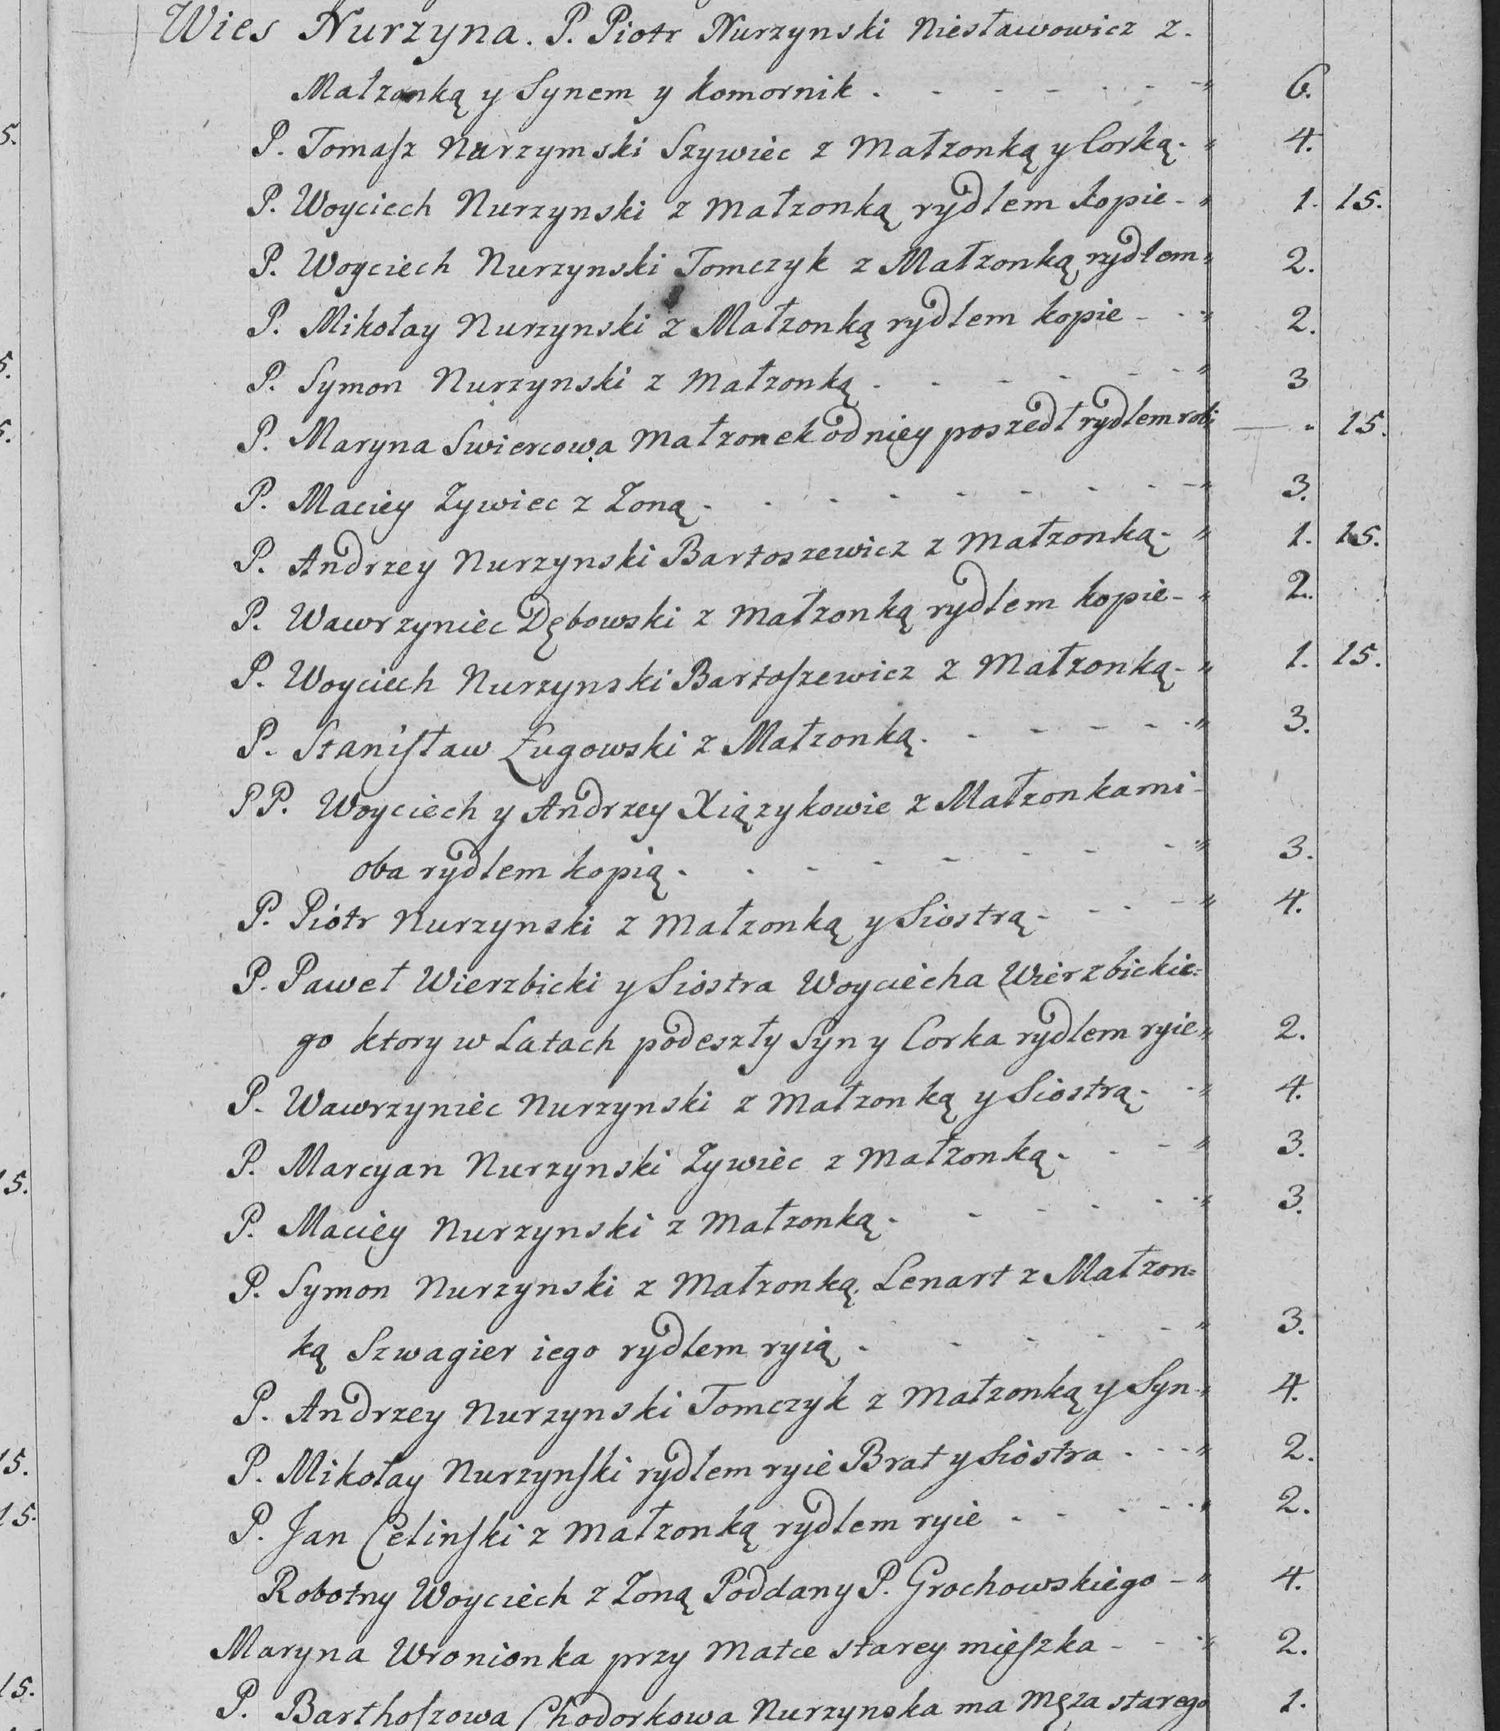 Wies Nurzyna. P. Piotr Nurzynski Niesławowicz z.
Małzonką y Synem y komornik . - - - - - " 6.
P. Tomasz Nurzymski Szywiec z Małzonką y Corką. " 4.
P. Woyciech Nurzynski z Małzonką rydlem kopie - " 1. 15.
P. Woyciech Nurzynski Tomczyk z Małzonką rydlem " 2.
P. Mikołay Nurzynski z Małzonką rydlem kopie - - " 2.
P. Symon Nurzynski z Małzonką . - - - - - " 3
P. Maryna Swiercowa Małzonek od niey poszedł rydlem robi — " 15.
P. Maciey Zywiec z Zoną . - - - - - - - " 3.
P. Andrzey Nurzynski Bartoszewicz z Małzonką. " 1. 15.
P. Wawrzyniec Dębowski z Małzonką rydlem kopie - " 2.
P. Woyciech Nurzynski Bartoszewicz z Małzonką - " 1. 15.
P. Stanisław Ługowski z Małzonką . - - - - " 3.
PP. Woyciech y Andrzey Xiązykowie z Małzonkami -
oba rydlem kopią . - - - - - - - " 3.
P. Piotr Nurzynski z Małzonką y Siostrą - - - - " 4.
P. Paweł Wierzbicki y Siostra Woyciecha Wierzbickie=
go ktory w Latach podeszły Syn y Corka rydlem ryie " 2.
P. Wawrzyniec Nurzynski z Małzonką y Siostrą . - " 4.
P. Marcyan Nurzynski Zywiec z Małzonką . - - " 3.
P. Maciey Nurzynski z Małzonką . - - - - - " 3.
P. Symon Nurzynski z Małzonką. Lenart z Małzon=
ką Szwagier iego rydlem ryią . - - - - - " 3.
P. Andrzey Nurzynski Tomczyk z Małzonką y Syn - " 4.
P. Mikołay Nurzynski rydlem ryie Brat y Siostra . - - " 2.
P. Jan Celinski z Małzonką rydlem ryie . - - - - " 2.
Robotny Woyciech z Zoną Poddany P. Grochowskiego - " 4.
Maryna Wronionka przy Matce starey mieszka - - " 2.
P. Barthoszowa Chodorkowa Nurzynska ma Męza starego 1.